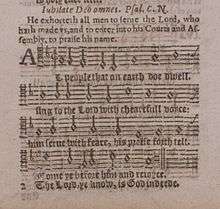 Iubilate Deo omnes. Psal. C. N.
He exhorteth all men to serue the Lord, who
hath made vs, and to enter into his Courts and As-
sembly, to praise his name.
A
L people that on earth doe dwell,
sing to the Lord with chearefull voice:
him serue with feare, his praise forth tell,
Come ye before him and reioyce.
2 The Lord ye know, is God indeede,